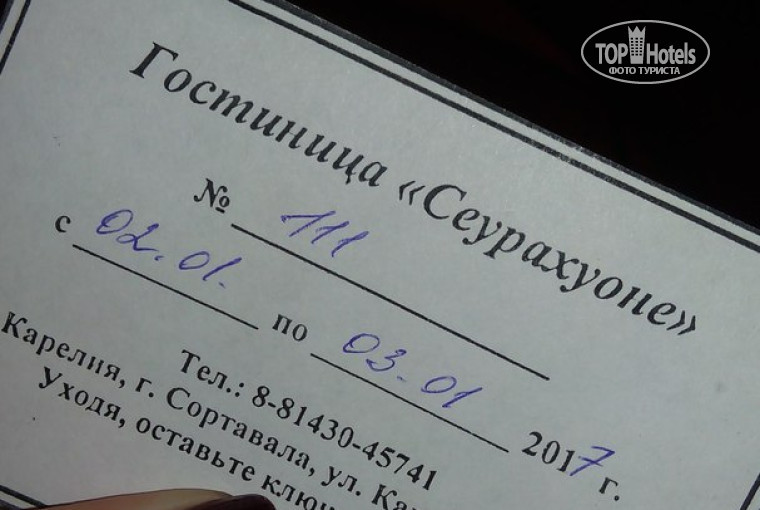 TOP Hotels
ФОТО ТУРИСТА
Гостиница «Сеурахуоне»
№ 111
с 02.01. по 03.01 2017 г.
Тел.: 8-81430-45741
Карелия, г. Сортавала, ул. Ка
Уходя, оставьте ключ